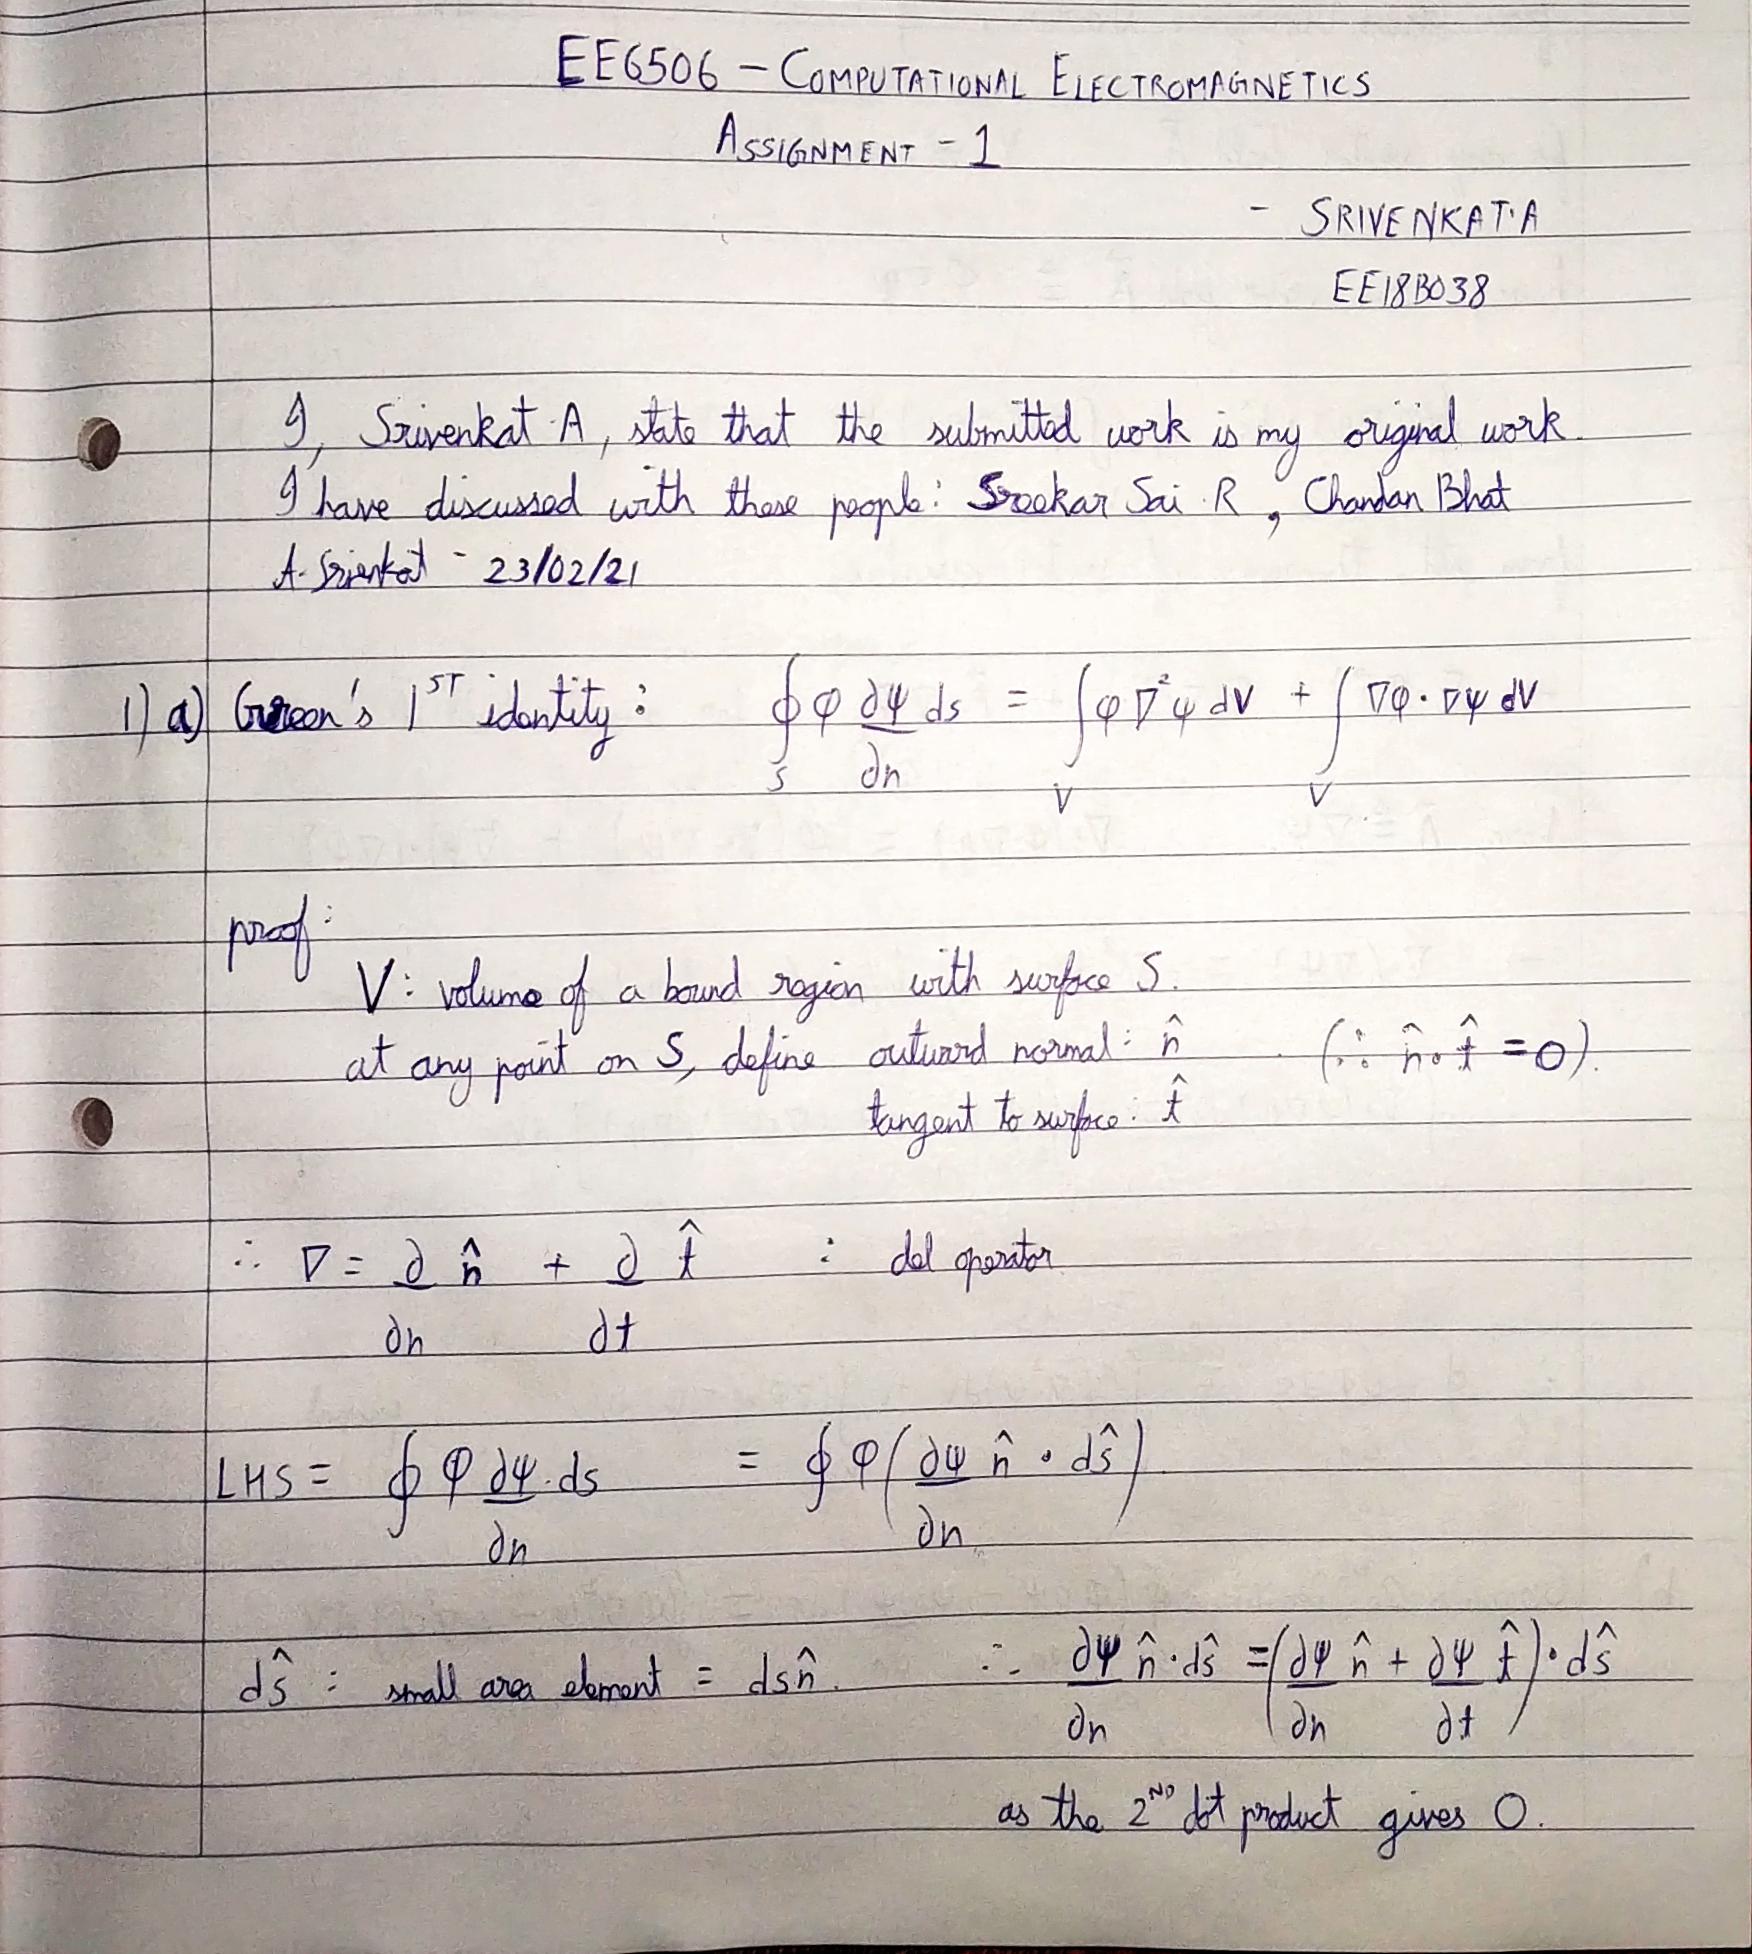 EE6506 - COMPUTATIONAL ELECTROMAGNETICS
ASSIGNMENT - 1
- SRIVENKAT·A
EE18B038
I, Srivenkat A, state that the submitted work is my original work.
I have discussed with these people: Sreekar Sai R, Chandan Bhat
A. Srivenkat - 23/02/21
1) a) Green's 1ST identity: ∮_S φ ∂ψ/∂n ds = ∫_V φ ∇²ψ dV + ∫_V ∇φ · ∇ψ dV
proof:
V: volume of a bound region with surface S.
at any point on S, define outward normal: n̂ (∴ n̂ · t̂ = 0).
tangent to surface: t̂
∴ ∇ = ∂/∂n n̂ + ∂/∂t t̂ : del operator
LHS = ∮ φ ∂ψ/∂n · ds = ∮ φ (∂ψ/∂n n̂ · dŝ)
dŝ : small area element = ds n̂. ∴ ∂ψ/∂n n̂ · dŝ = (∂ψ/∂n n̂ + ∂ψ/∂t t̂) · dŝ
as the 2ND dot product gives 0.